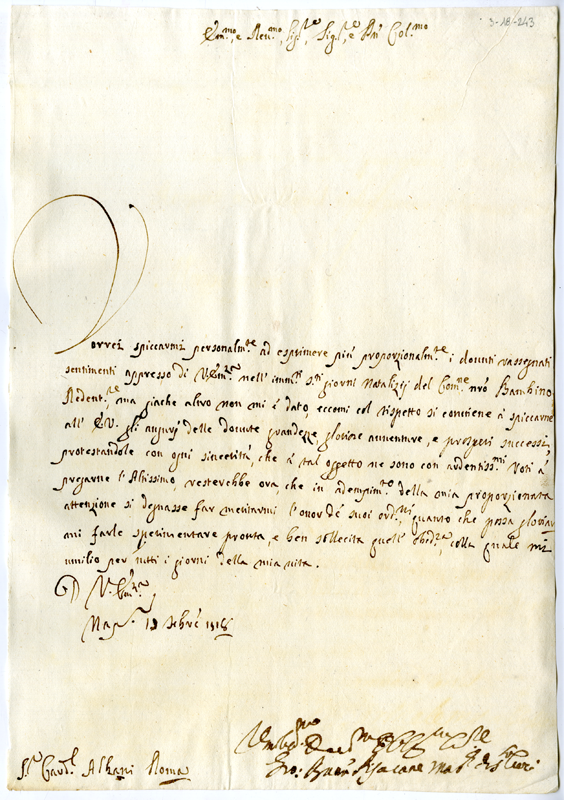 3-18-243
Em.mo, e Rev.mo Sig.re, Sig.re, e Pn̄ Col.mo
Vorrei spiccarmi personalm.te ad esprimere più proporzionalm.te i dovuti rassegnati
sentimenti appresso di V. Em.za nell'imm.ti s.ti giorni Natalizij del Com.ne nr̄o Bambino
Redent.re ma giache altro non mi è dato, eccomi col rispetto si conviene à spiccarne
all' E.V. gli augurj delle dovute grandezze, gloriose avventure, e prosperi successi,
protestandole con ogni sincerità, che à tal oggetto ne sono con ardentiss.mi Voti à
pregarne l'Altissimo, resterebbe ora, che in adempim.to della mia proporzionata
attenzione si degnasse far meritarmi l'onor de suoi ord.ni, quanto che possa gloriar
mi farle sperimentare pronta, e ben sollecita quell' obid.za, colla quale mi
umilio per tutti i giorni della mia vita.
D V. Em.za
Nap. 19 Xbre 1718
S.r Card.l Albani Roma
Gio: